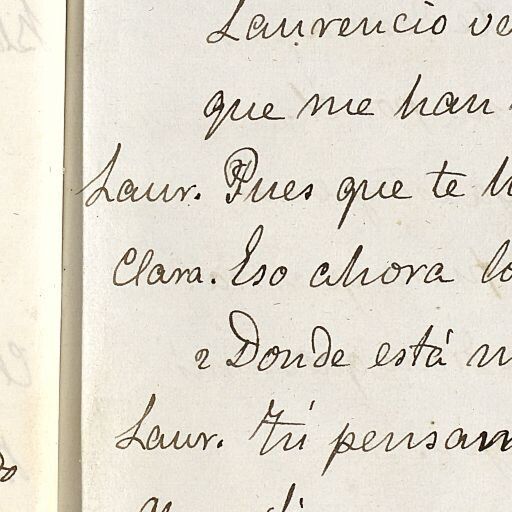 Laurencio ve
que me han
Laur. Pues que te h
Clara. Eso ahora lo
¿Donde está m
Laur. Tú pensam